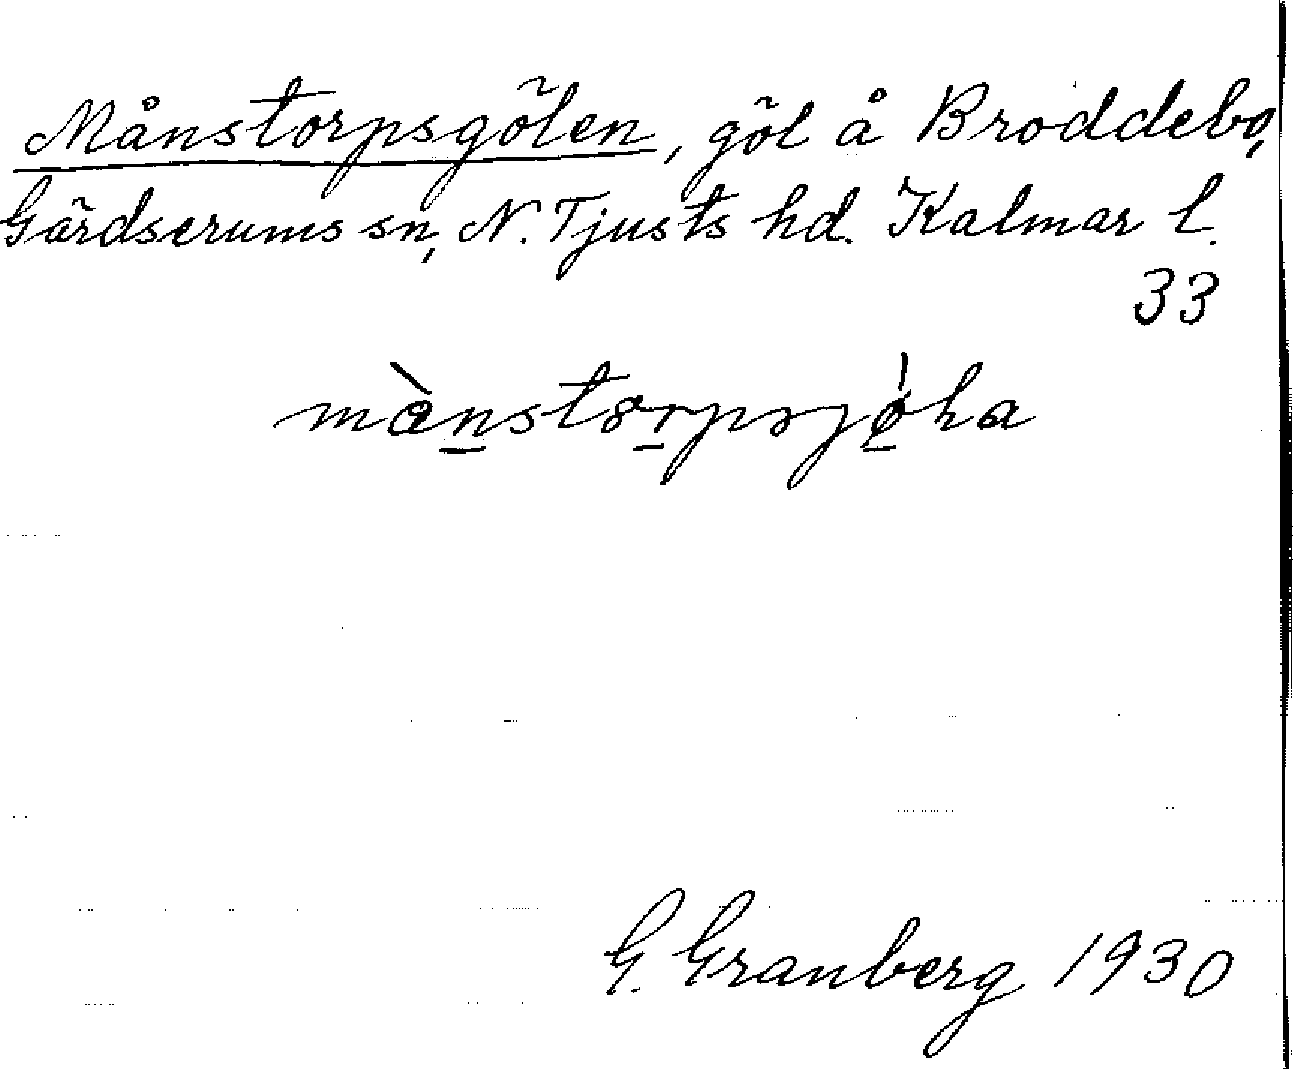 Månstorpsgölen, göl å Broddebo,
Gärdserums sn, N. Tjusts hd. Kalmar l.
33
G. Granberg 1930